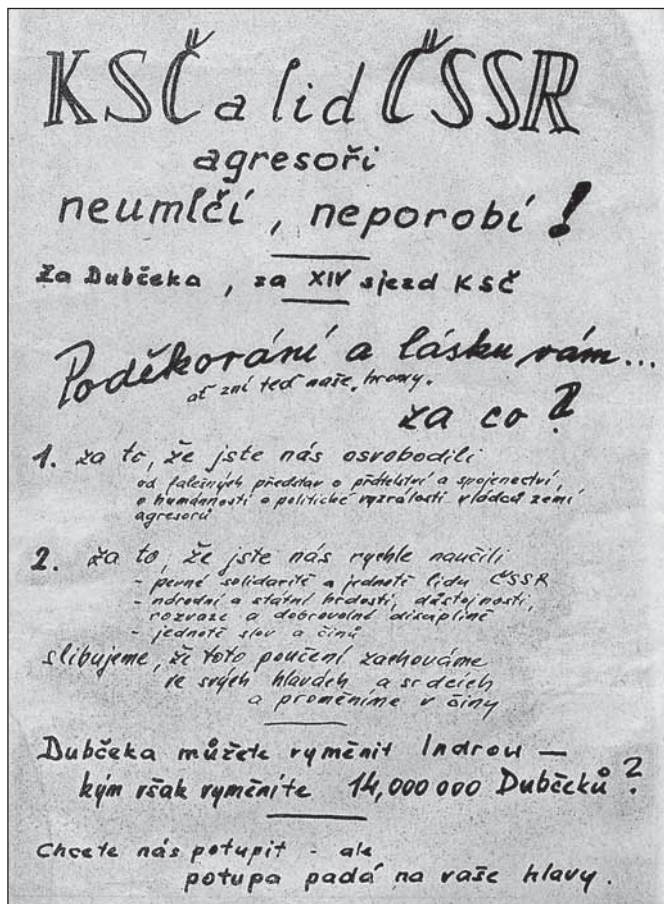 KSČ a lid ČSSR
agresoři
neumlčí, neporobí!
Za Dubčeka, za XIV sjezd KSČ
Poděkování a lásku vám...
ať zní teď naše hromy.
za co?
1. za to, že jste nás osvobodili
od falešných představ o přátelství a spojenectví,
o humánnosti o politické vyzrálosti vládců zemí
agresorů
2. za to, že jste nás rychle naučili
- pevné solidaritě a jednotě lidu ČSSR
- národní a státní hrdosti, důstojnosti,
rozvaze a dobrovolné disciplině
- jednotě slov a činů
slibujeme, že toto poučení zachováme
ve svých hlavách a srdcích
a proměníme v činy
Dubčeka můžete vyměnit Indrou —
kým však vyměníte 14,000 000 Dubčeků?
Chcete nás potupit - ale
potupa padá na vaše hlavy.